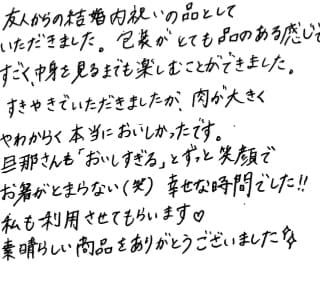 友人からの結婚内祝いの品として
いただきました。包装がとても品のある感じで
すごく、中身を見るまでも楽しむことができました。
すきやきでいただきましたが、肉が大きく
やわらかく本当においしかったです。
旦那さんも「おいしすぎる」とずっと笑顔で
お箸がとまらない(笑) 幸せな時間でした!!
私も利用させてもらいます♡
素晴らしい商品をありがとうございました☆